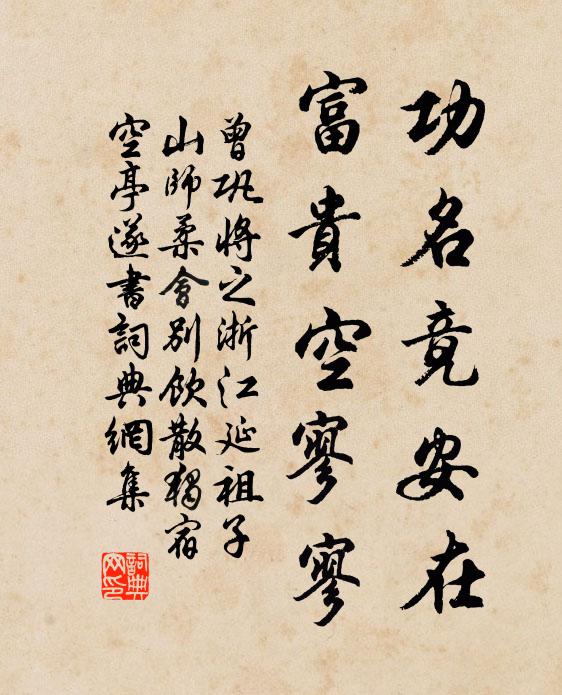 功名竟安在
富貴空寥寥
曾巩將之浙江延祖子
山師柔會別飲散獨宿
空亭遂書詞典網集
詞典
网印